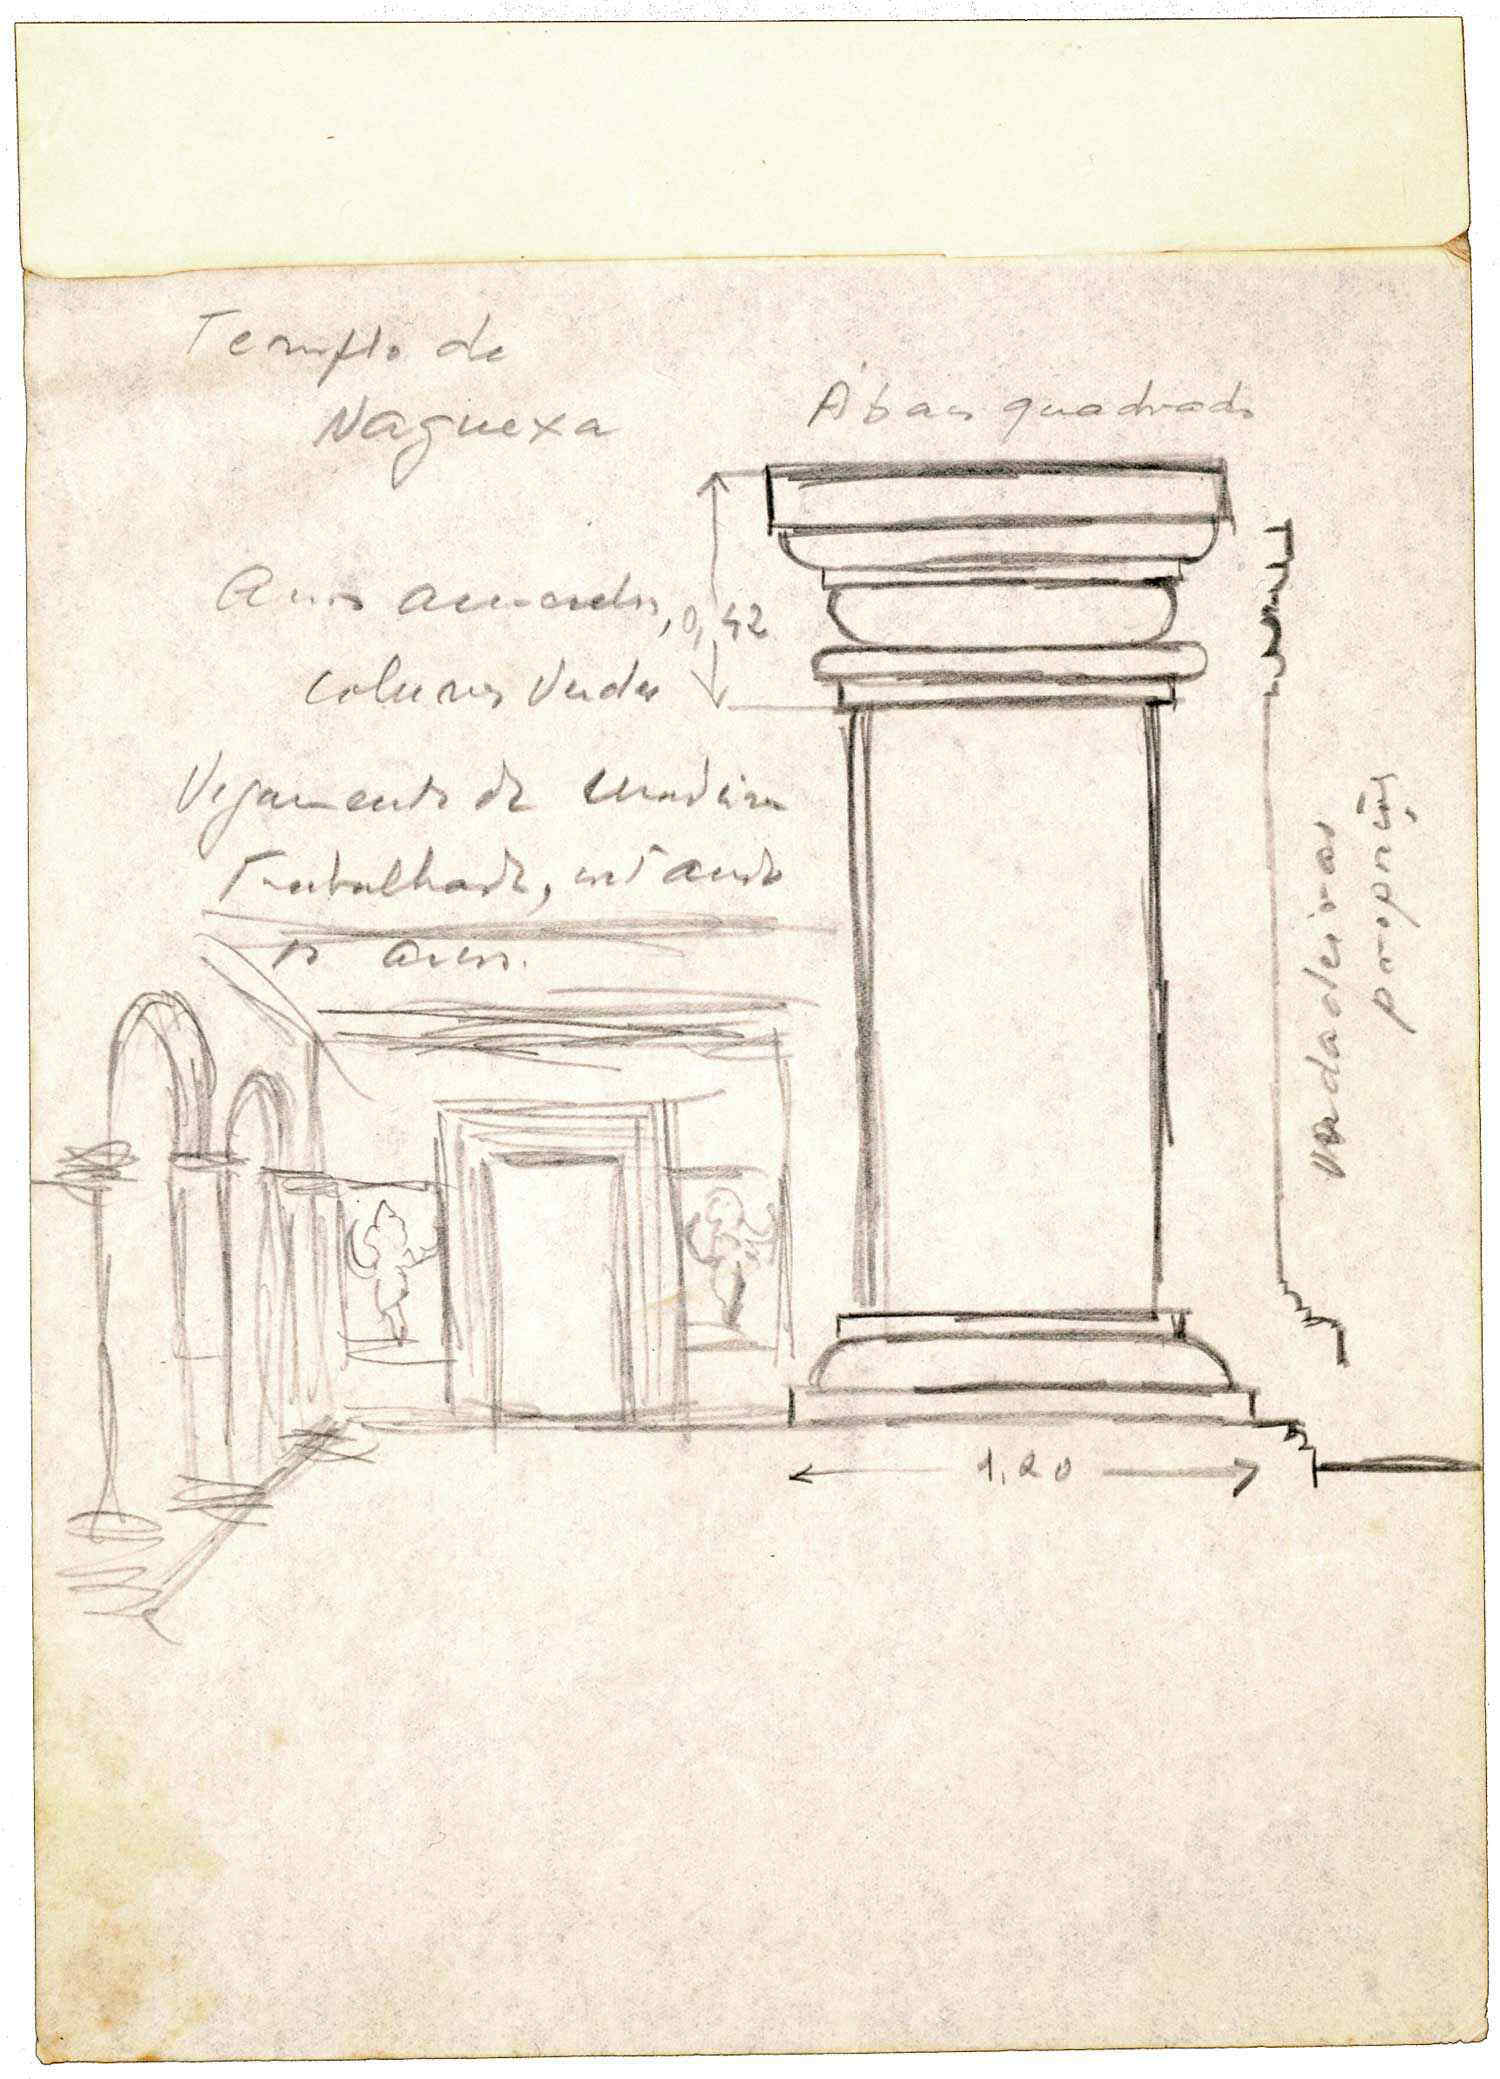 Templo de
Naguexa
Ábaco quadrado
Arcos
0,42
colunas verdes
Vigamento de madeira
Trabalhada,
os arcos.
verdadeiras
proporções
1,20